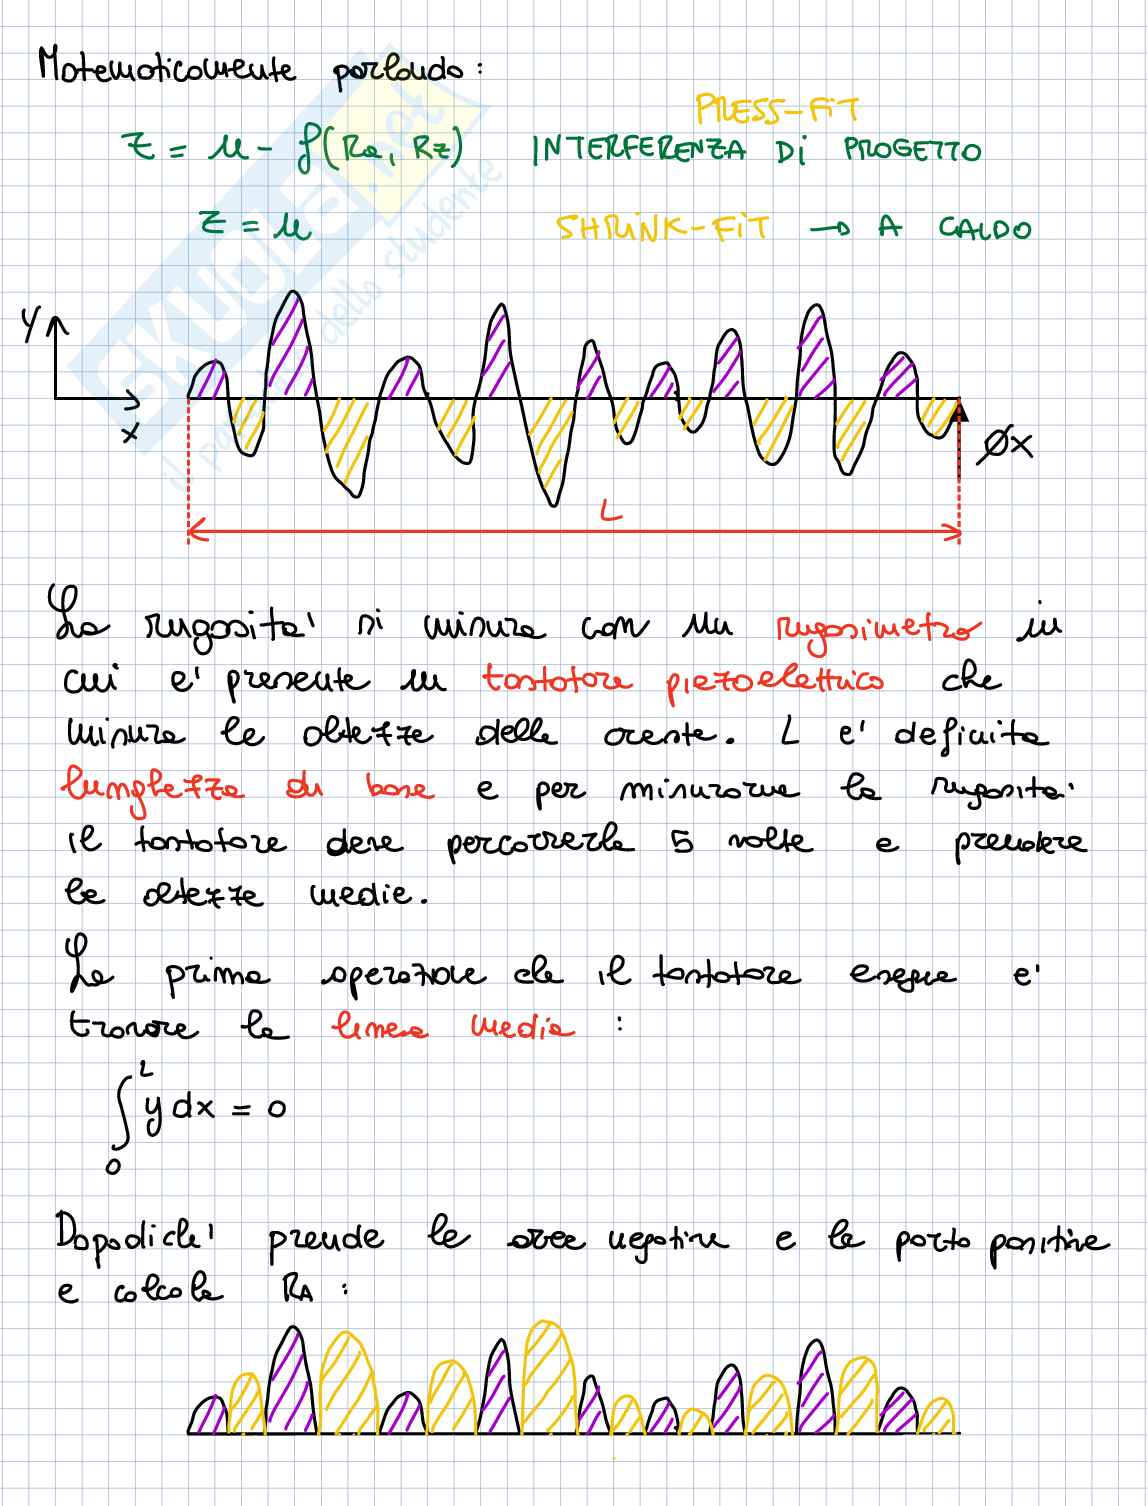 Matematicamente parlando:
PRESS-FIT
Z = u - f(Ra, Rz) INTERFERENZA DI PROGETTO
Z = u SHRINK-FIT → A CALDO
y
x
Øx
L
La rugosita' si misura con un rugosimetro in
cui e' presente un tastatore piezoelettrico che
misura le altezze delle creste. L e' definita
lunghezza di base e per misurarne la rugosita'
il tastatore deve percorrerla 5 volte e prendere
le altezze medie.
La prima operazione che il tastatore esegue e'
trovare la linea media :
∫₀ᴸ y dx = 0
Dopodiche' prende le aree negative e le porta positive
e calcola RA :
SKUOLA.net
il paradiso dello studente